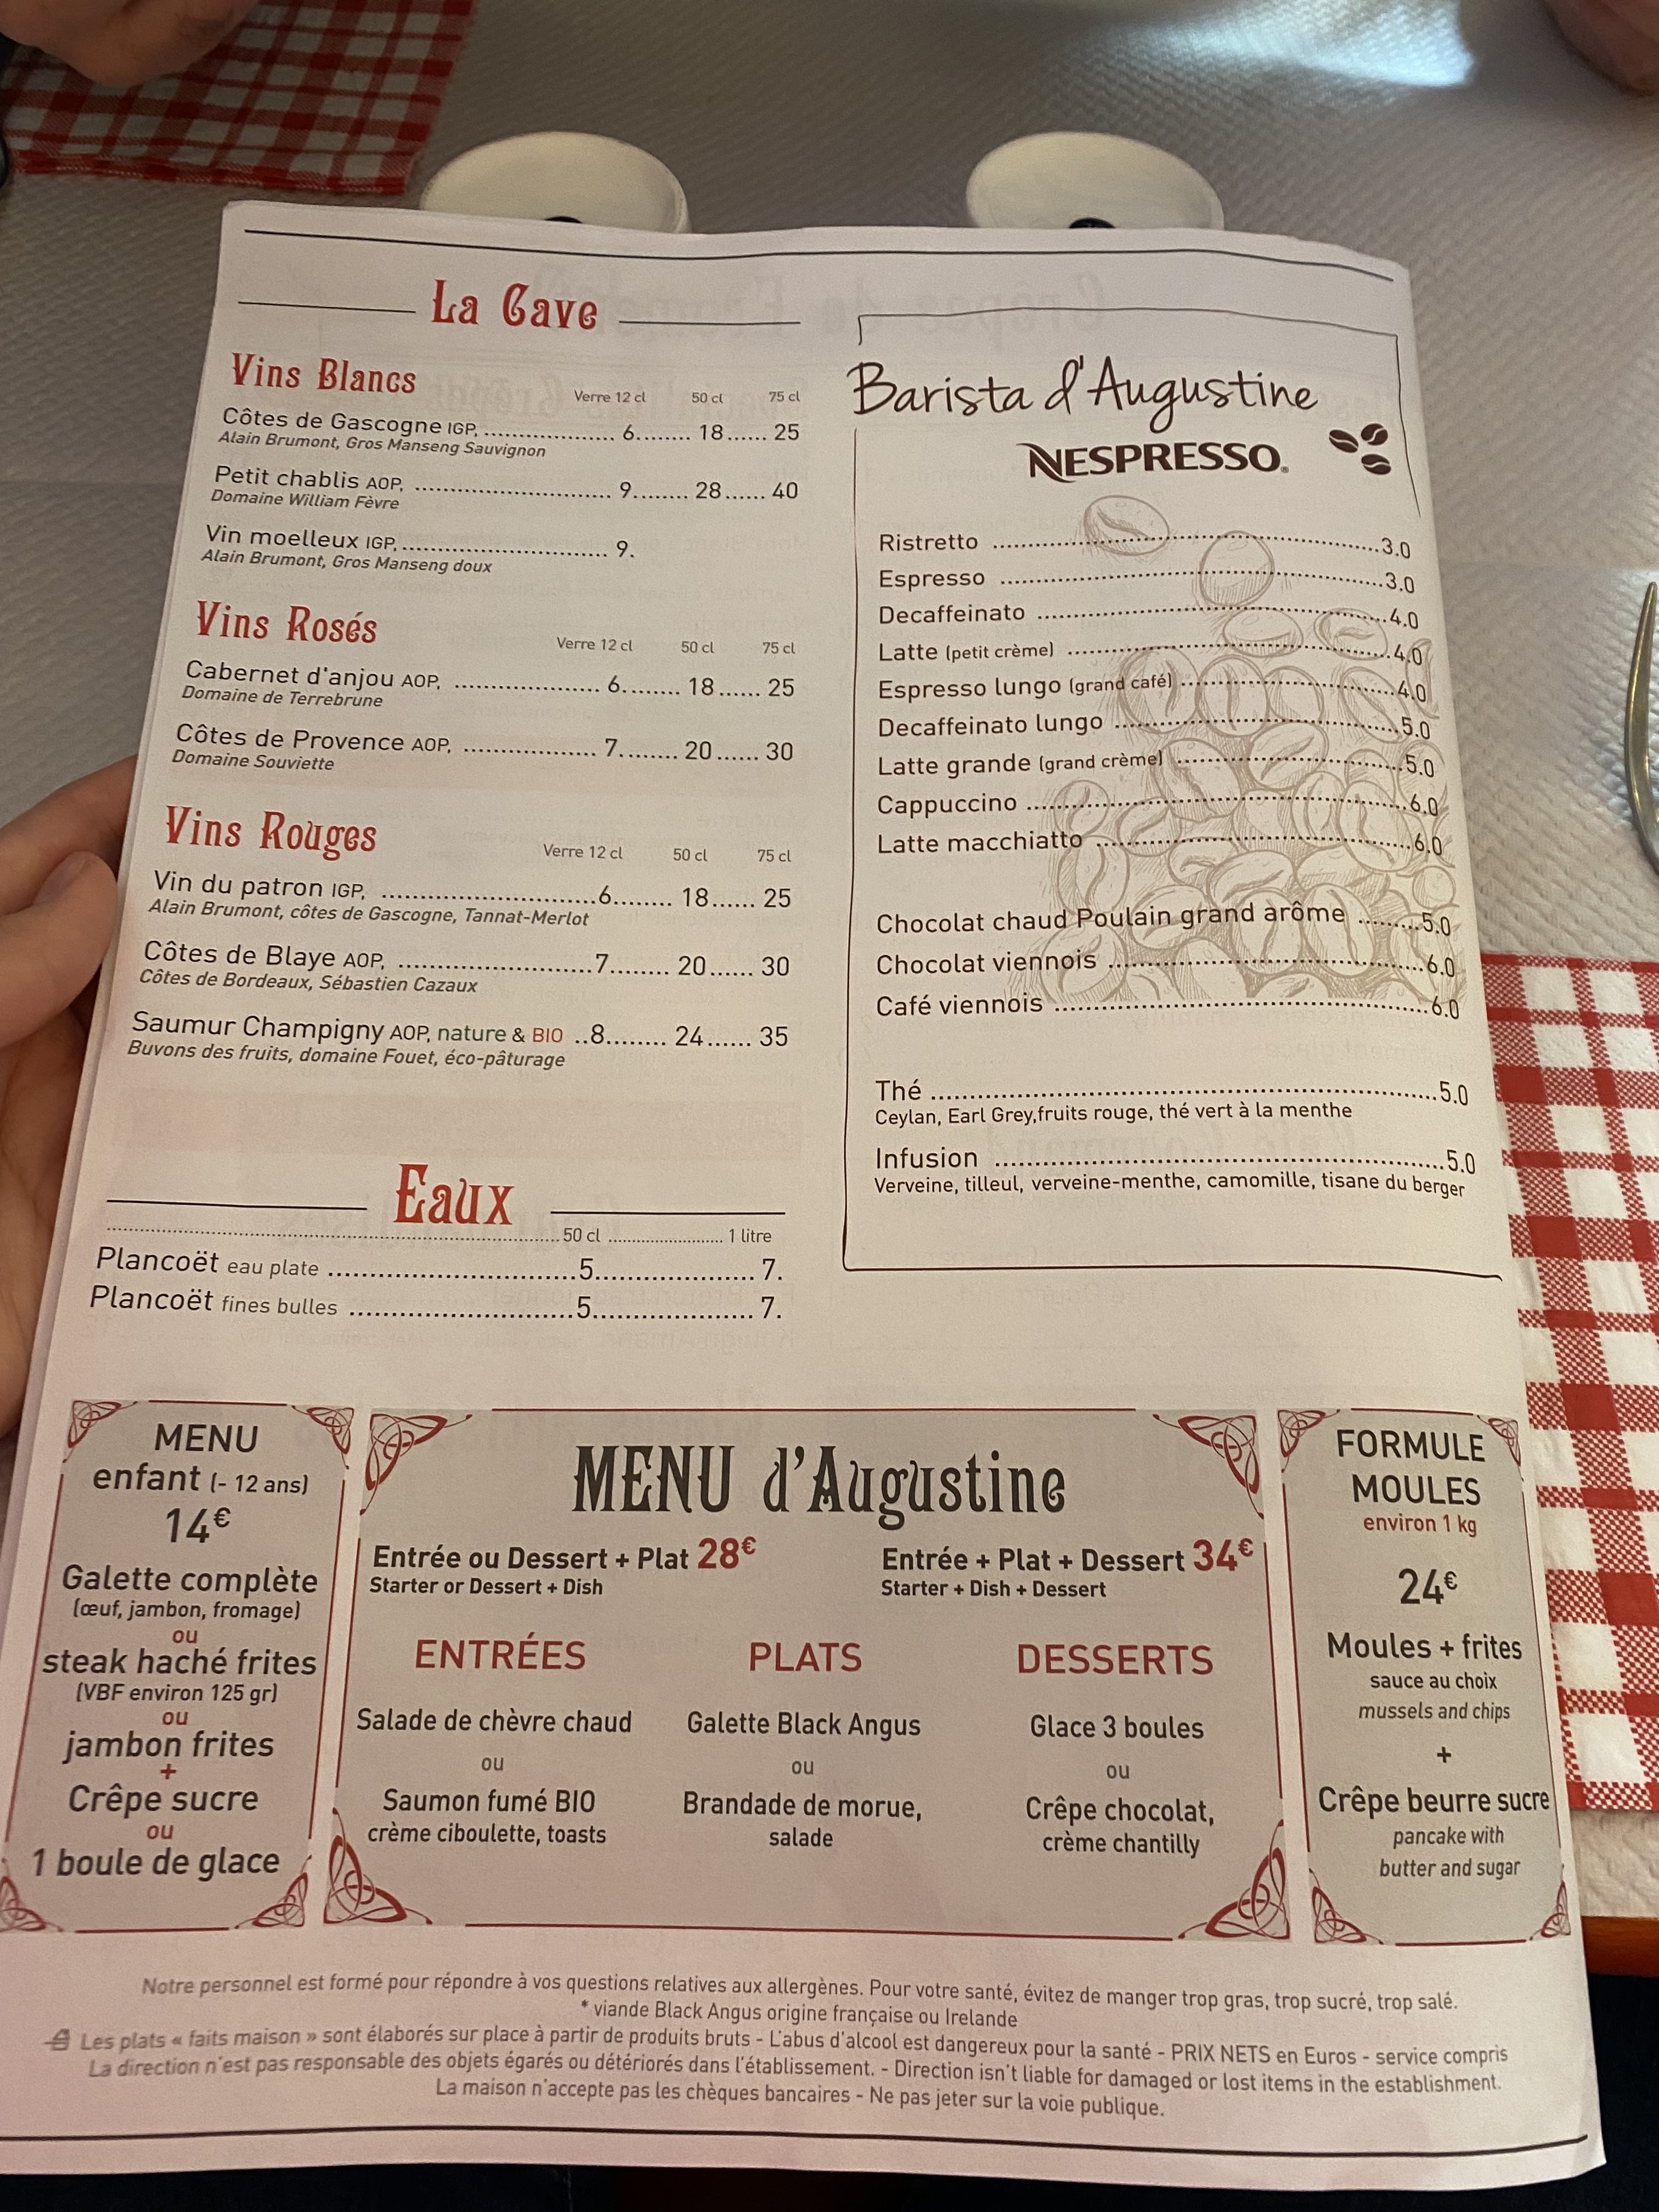 La Cave
Vins Blancs
Verre 12 cl 50 cl 75 cl
Côtes de Gascogne IGP, ................... 6........ 18...... 25
Alain Brumont, Gros Manseng Sauvignon
Petit chablis AOP, ............................. 9........ 28...... 40
Domaine William Fèvre
Vin moelleux IGP, .............................. 9.
Alain Brumont, Gros Manseng doux
Vins Rosés
Verre 12 cl 50 cl 75 cl
Cabernet d'anjou AOP, ..................... 6........ 18...... 25
Domaine de Terrebrune
Côtes de Provence AOP, ................... 7........ 20...... 30
Domaine Souviette
Vins Rouges
Verre 12 cl 50 cl 75 cl
Vin du patron IGP, ..............................6........ 18...... 25
Alain Brumont, côtes de Gascogne, Tannat-Merlot
Côtes de Blaye AOP, ...........................7........ 20...... 30
Côtes de Bordeaux, Sébastien Cazaux
Saumur Champigny AOP, nature & BIO ..8........ 24...... 35
Buvons des fruits, domaine Fouet, éco-pâturage
Eaux
50 cl ............................ 1 litre
Plancoët eau plate .................................5..................... 7.
Plancoët fines bulles ..............................5..................... 7.
Barista d'Augustine
NESPRESSO®
Ristretto ............................................3.0
Espresso ............................................3.0
Decaffeinato .......................................4.0
Latte (petit crème) ................................4.0
Espresso lungo (grand café) .....................4.0
Decaffeinato lungo ................................5.0
Latte grande (grand crème) ......................5.0
Cappuccino .........................................6.0
Latte macchiatto ...................................6.0
Chocolat chaud Poulain grand arôme .........5.0
Chocolat viennois ..................................6.0
Café viennois .......................................6.0
Thé ...................................................5.0
Ceylan, Earl Grey,fruits rouge, thé vert à la menthe
Infusion ..............................................5.0
Verveine, tilleul, verveine-menthe, camomille, tisane du berger
MENU
enfant (- 12 ans)
14€
Galette complète
(œuf, jambon, fromage)
ou
steak haché frites
(VBF environ 125 gr)
ou
jambon frites
+
Crêpe sucre
ou
1 boule de glace
MENU d'Augustine
Entrée ou Dessert + Plat 28€
Starter or Dessert + Dish
Entrée + Plat + Dessert 34€
Starter + Dish + Dessert
ENTRÉES
Salade de chèvre chaud
ou
Saumon fumé BIO
crème ciboulette, toasts
PLATS
Galette Black Angus
ou
Brandade de morue,
salade
DESSERTS
Glace 3 boules
ou
Crêpe chocolat,
crème chantilly
FORMULE
MOULES
environ 1 kg
24€
Moules + frites
sauce au choix
mussels and chips
+
Crêpe beurre sucre
pancake with
butter and sugar
Notre personnel est formé pour répondre à vos questions relatives aux allergènes. Pour votre santé, évitez de manger trop gras, trop sucré, trop salé.
* viande Black Angus origine française ou Irelande
Les plats « faits maison » sont élaborés sur place à partir de produits bruts - L'abus d'alcool est dangereux pour la santé - PRIX NETS en Euros - service compris
La direction n'est pas responsable des objets égarés ou détériorés dans l'établissement. - Direction isn't liable for damaged or lost items in the establishment.
La maison n'accepte pas les chèques bancaires - Ne pas jeter sur la voie publique.